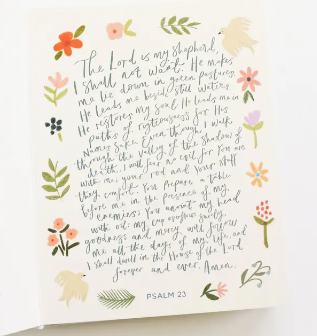 The Lord is my shepherd,
I shall not want. He makes
me lie down in green pastures.
He leads me beside still waters.
He restores my soul. He leads me in
paths of righteousness for His
Names sake. Even though I walk
through the valley of the shadow of
death, I will fear no evil for You are
with me; your rod and Your staff
they comfort. You prepare a table
before me in the presence of my
enemies; You anoint my head
with oil; my cup overflows. Surely,
goodness and mercy will follow
me all the days of my life, and
I shall dwell in the House of the Lord
forever and ever. Amen.
PSALM 23